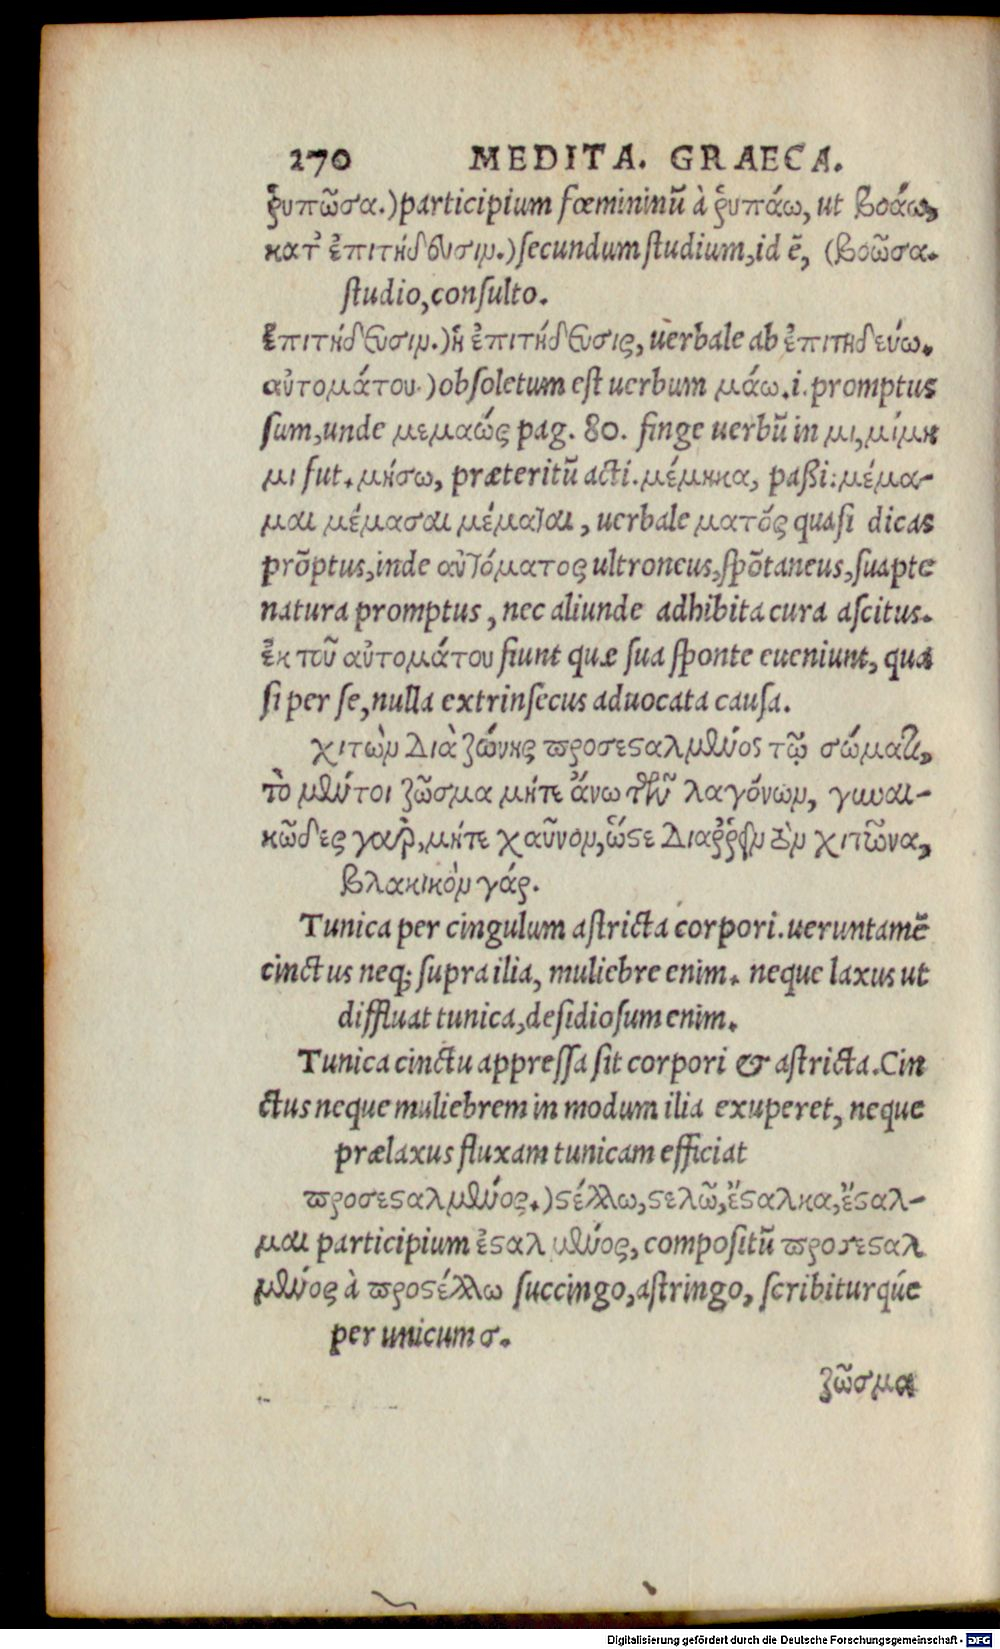 270 MEDITA. GRAECA.
ῥυπῶσα.) participium fœmininū à ῥυπάω, ut βοάω,
κατ' ἐπιτήδευσιν.) secundum studium, id ē, (βοῶσα.
studio, consulto.
ἐπιτήδευσιν.) ἡ ἐπιτήδευσις, uerbale ab ἐπιτηδεύω.
αὐτομάτου.) obsoletum est uerbum μάω. i. promptus
sum, unde μεμαώς pag. 80. finge uerbū in μι, μίμη
μι fut. μήσω, præteritū acti. μέμηκα, paßi: μέμα-
μαι μέμασαι μέμαται, uerbale ματός quasi dicas
prōptus, inde αὐτόματος ultroneus, spōtaneus, suapte
natura promptus, nec aliunde adhibita cura ascitus.
ἐκ τοῦ αὐτομάτου fiunt quæ sua sponte eueniunt, qua
si per se, nulla extrinsecus aduocata causa.
χιτὼν διὰ ζώνης προσεσταλμένος τῷ σώματι,
τὸ μέντοι ζῶσμα μήτε ἄνω τῶν λαγόνων, γυναι-
κῶδες γὰρ, μήτε χαῦνον, ὥστε διαῤῥεῖν τὸν χιτῶνα,
βλακικὸν γάρ.
Tunica per cingulum astricta corpori. ueruntamē
cinctus neq; supra ilia, muliebre enim. neque laxus ut
diffluat tunica, desidiosum enim.
Tunica cinctu appressa sit corpori & astricta. Cin
ctus neque muliebrem in modum ilia exuperet, neque
prælaxus fluxam tunicam efficiat
προσεσταλμένος.) στέλλω, στελῶ, ἔσταλκα, ἔσταλ-
μαι participium ἐσταλμένος, compositū προσεσταλ
μένος à προστέλλω succingo, astringo, scribiturq́ue
per unicum σ.
ζῶσμα
Digitalisierung gefördert durch die Deutsche Forschungsgemeinschaft - DFG